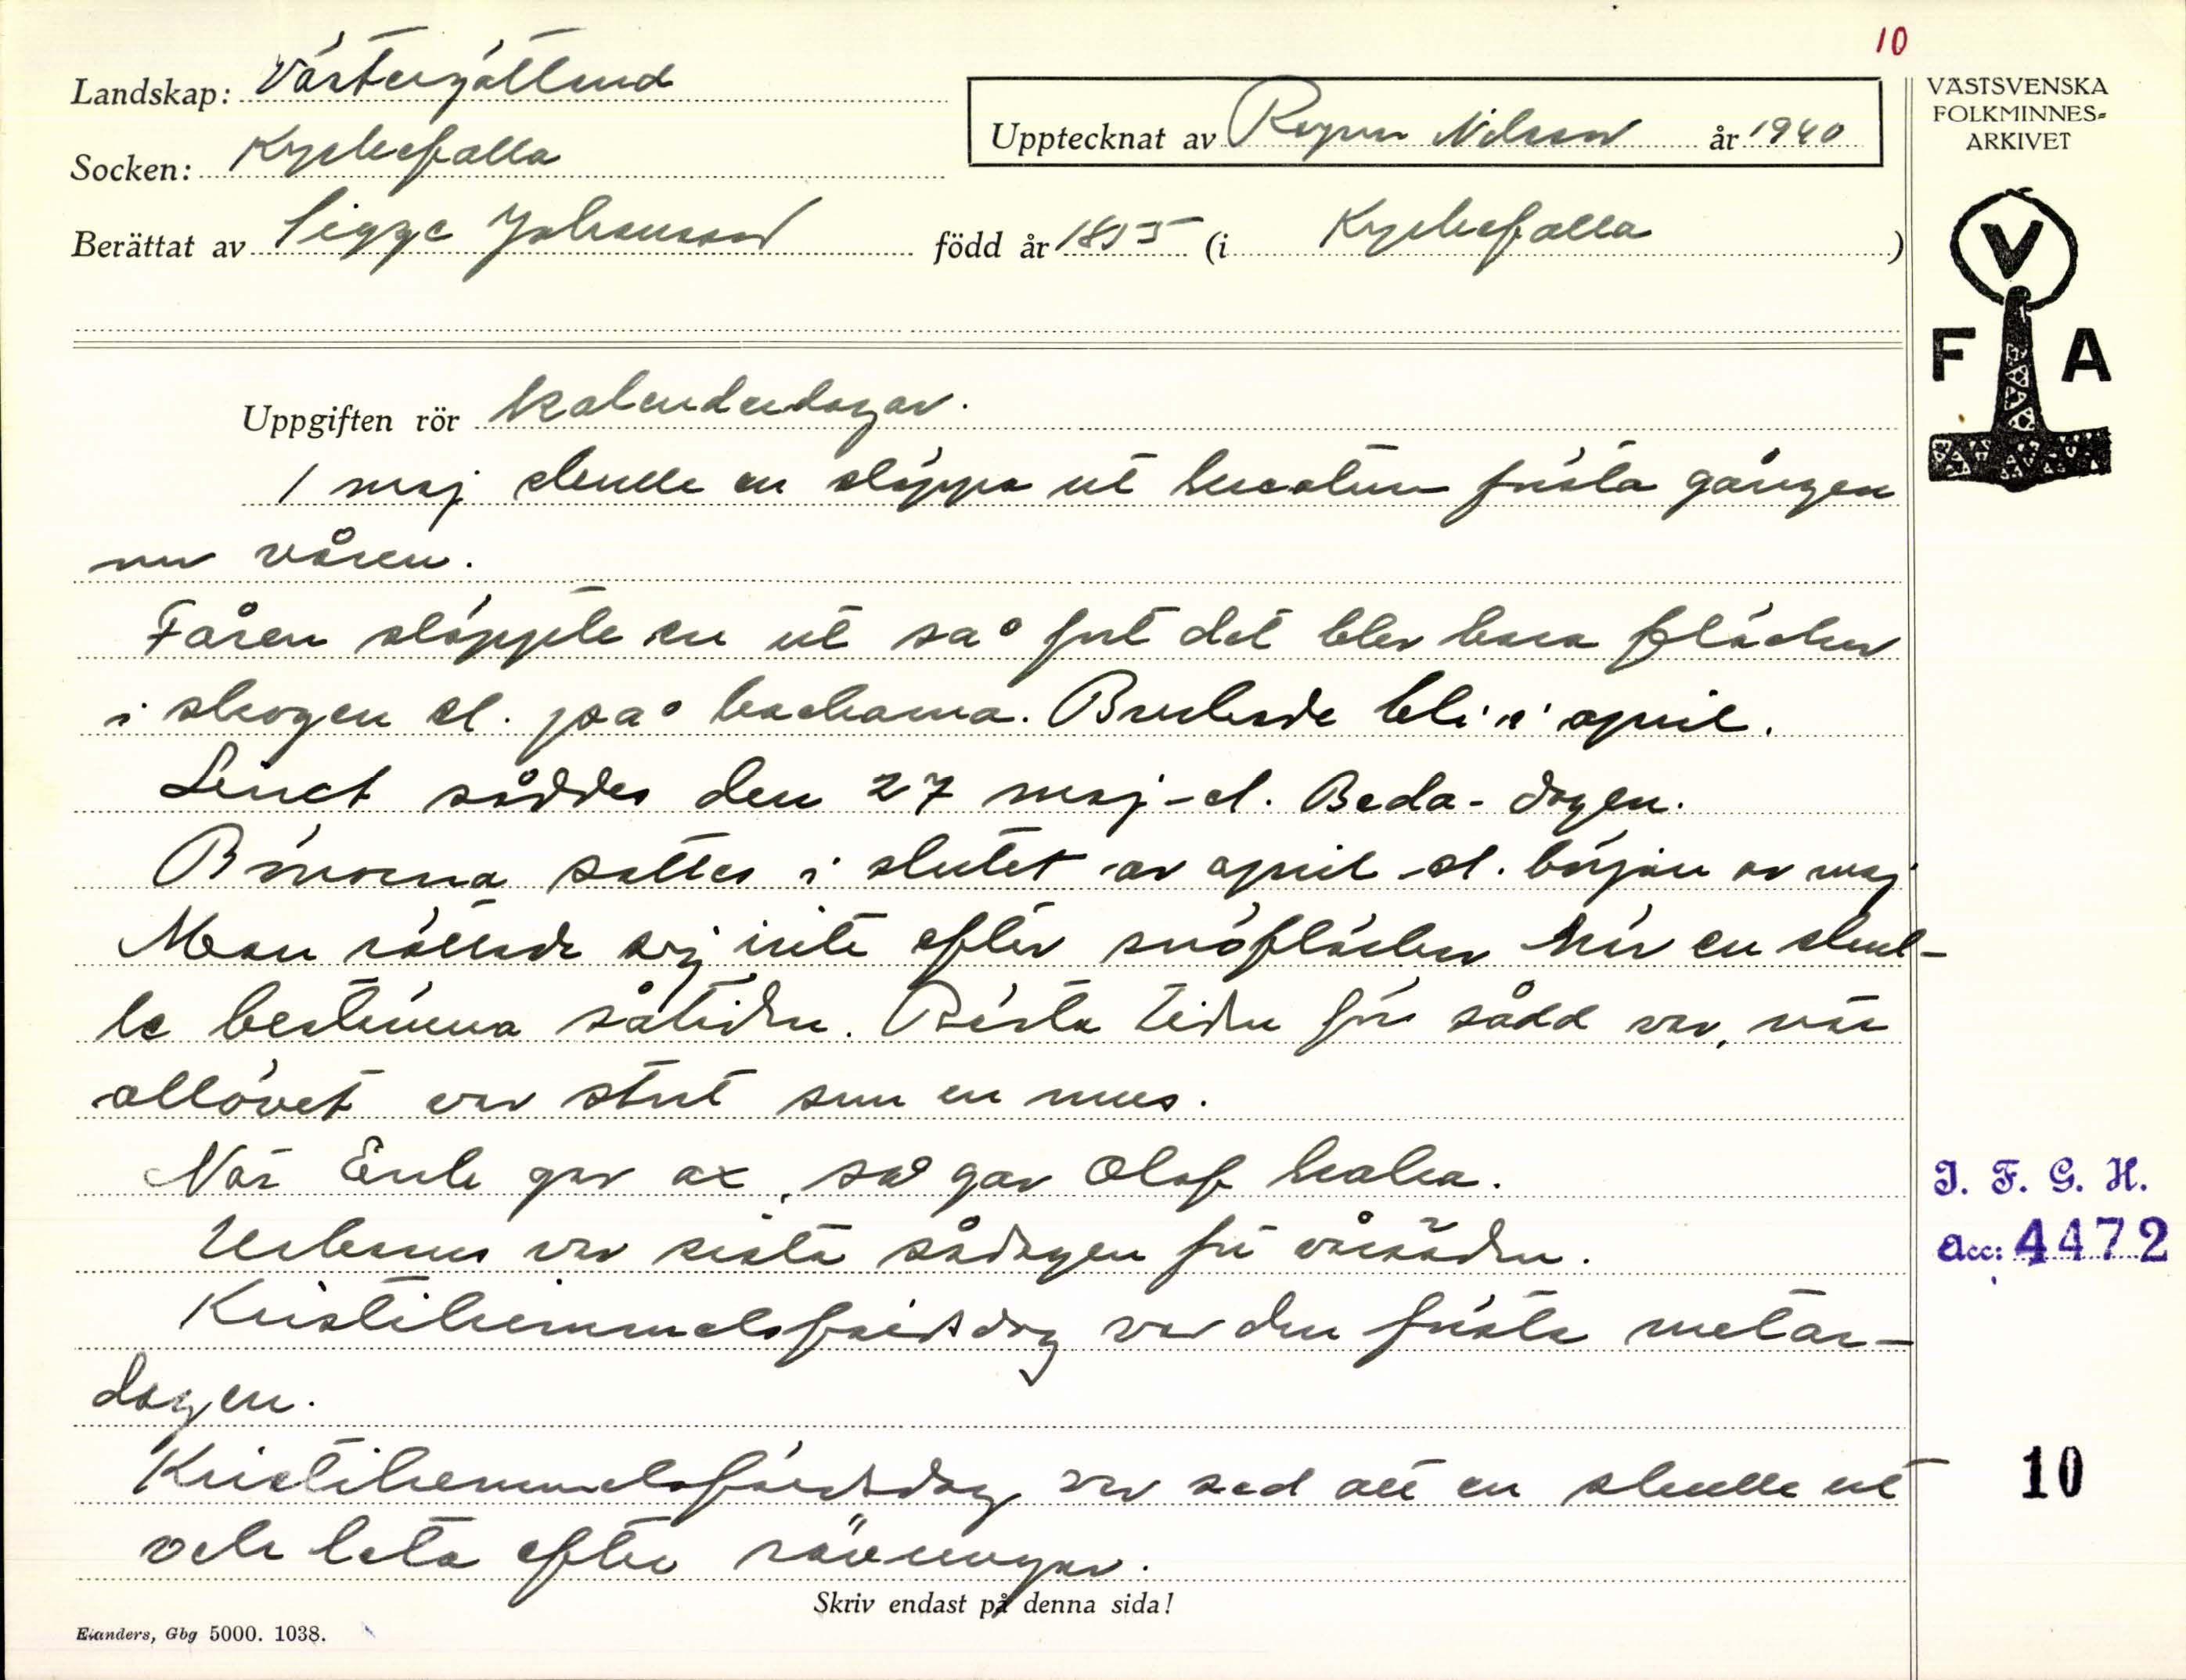 10
Landskap: Västergötland
VÄSTSVENSKA
FOLKMINNES=
ARKIVET
Upptecknat av Ragnar Nilsson år 1940
Socken: Kyrkefalla
Berättat av Sigge Johansson född år 1855 (i Kyrkefalla)
V
F A
Uppgiften rör Kalenderdagar.
1 maj skulle en släppa ut kreaturen första gången
om våren.
Fåren släppte en ut så fort det blev bara fläckar
i skogen el. på backarna. Brukade bli i april.
Linet såddes den 27 maj - el. Beda-dagen.
Bönorna sattes i slutet av april el. början av maj
Man rättade sig inte efter snöfläckar när en skul-
le bestämma såtiden. Bästa tiden för sådd var, när
allövet var stort som en mus.
När Erik gav ax, så gav Olof kaka.
Urbanus var sista sådagen för vårsäden.
Kristihimmelsfärdsdag var den första metar-
dagen.
Kristihimmelsfärdsdag var sed att en skulle ut
och leta efter rävungar.
J. F. G. H.
Acc: 4472
10
Skriv endast på denna sida!
Elanders, Gbg 5000. 1038.